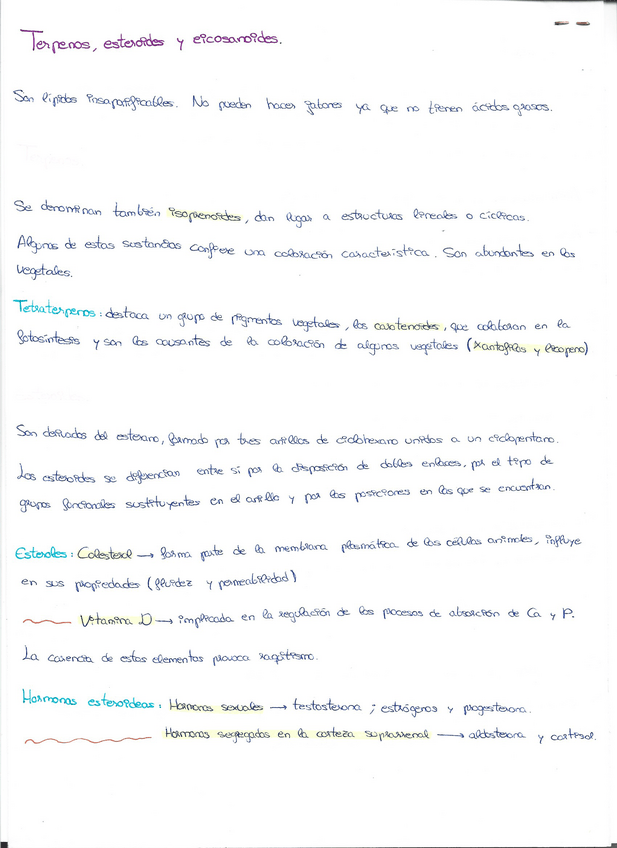 Terpenos, esteroides y eicosanoides.
Son lípidos insaponificables. No pueden hacer jabones ya que no tienen ácidos grasos.
Se denominan también isoprenoides, dan lugar a estructuras lineales o cíclicas.
Algunas de estas sustancias confiere una coloración característica. Son abundantes en los
vegetales.
Tetraterpenos: destaca un grupo de pigmentos vegetales, los carotenoides, que colaboran en la
fotosíntesis y son los causantes de la coloración de algunos vegetales (xantofilas y licopeno)
Son derivados del esterano, formado por tres anillos de ciclohexano unidos a un ciclopentano.
Los esteroides se diferencian entre sí por la disposición de dobles enlaces, por el tipo de
grupos funcionales sustituyentes en el anillo y por las posiciones en las que se encuentran.
Esteroles: Colesterol → forma parte de la membrana plasmática de las células animales, influye
en sus propiedades (fluidez y permeabilidad)
Vitamina D → implicada en la regulación de los procesos de absorción de Ca y P.
La carencia de estos elementos provoca raquitismo.
Hormonas esteroideas: Hormonas sexuales → testosterona ; estrógenos y progesterona.
Hormonas segregadas en la corteza suprarrenal → aldosterona y cortisol.